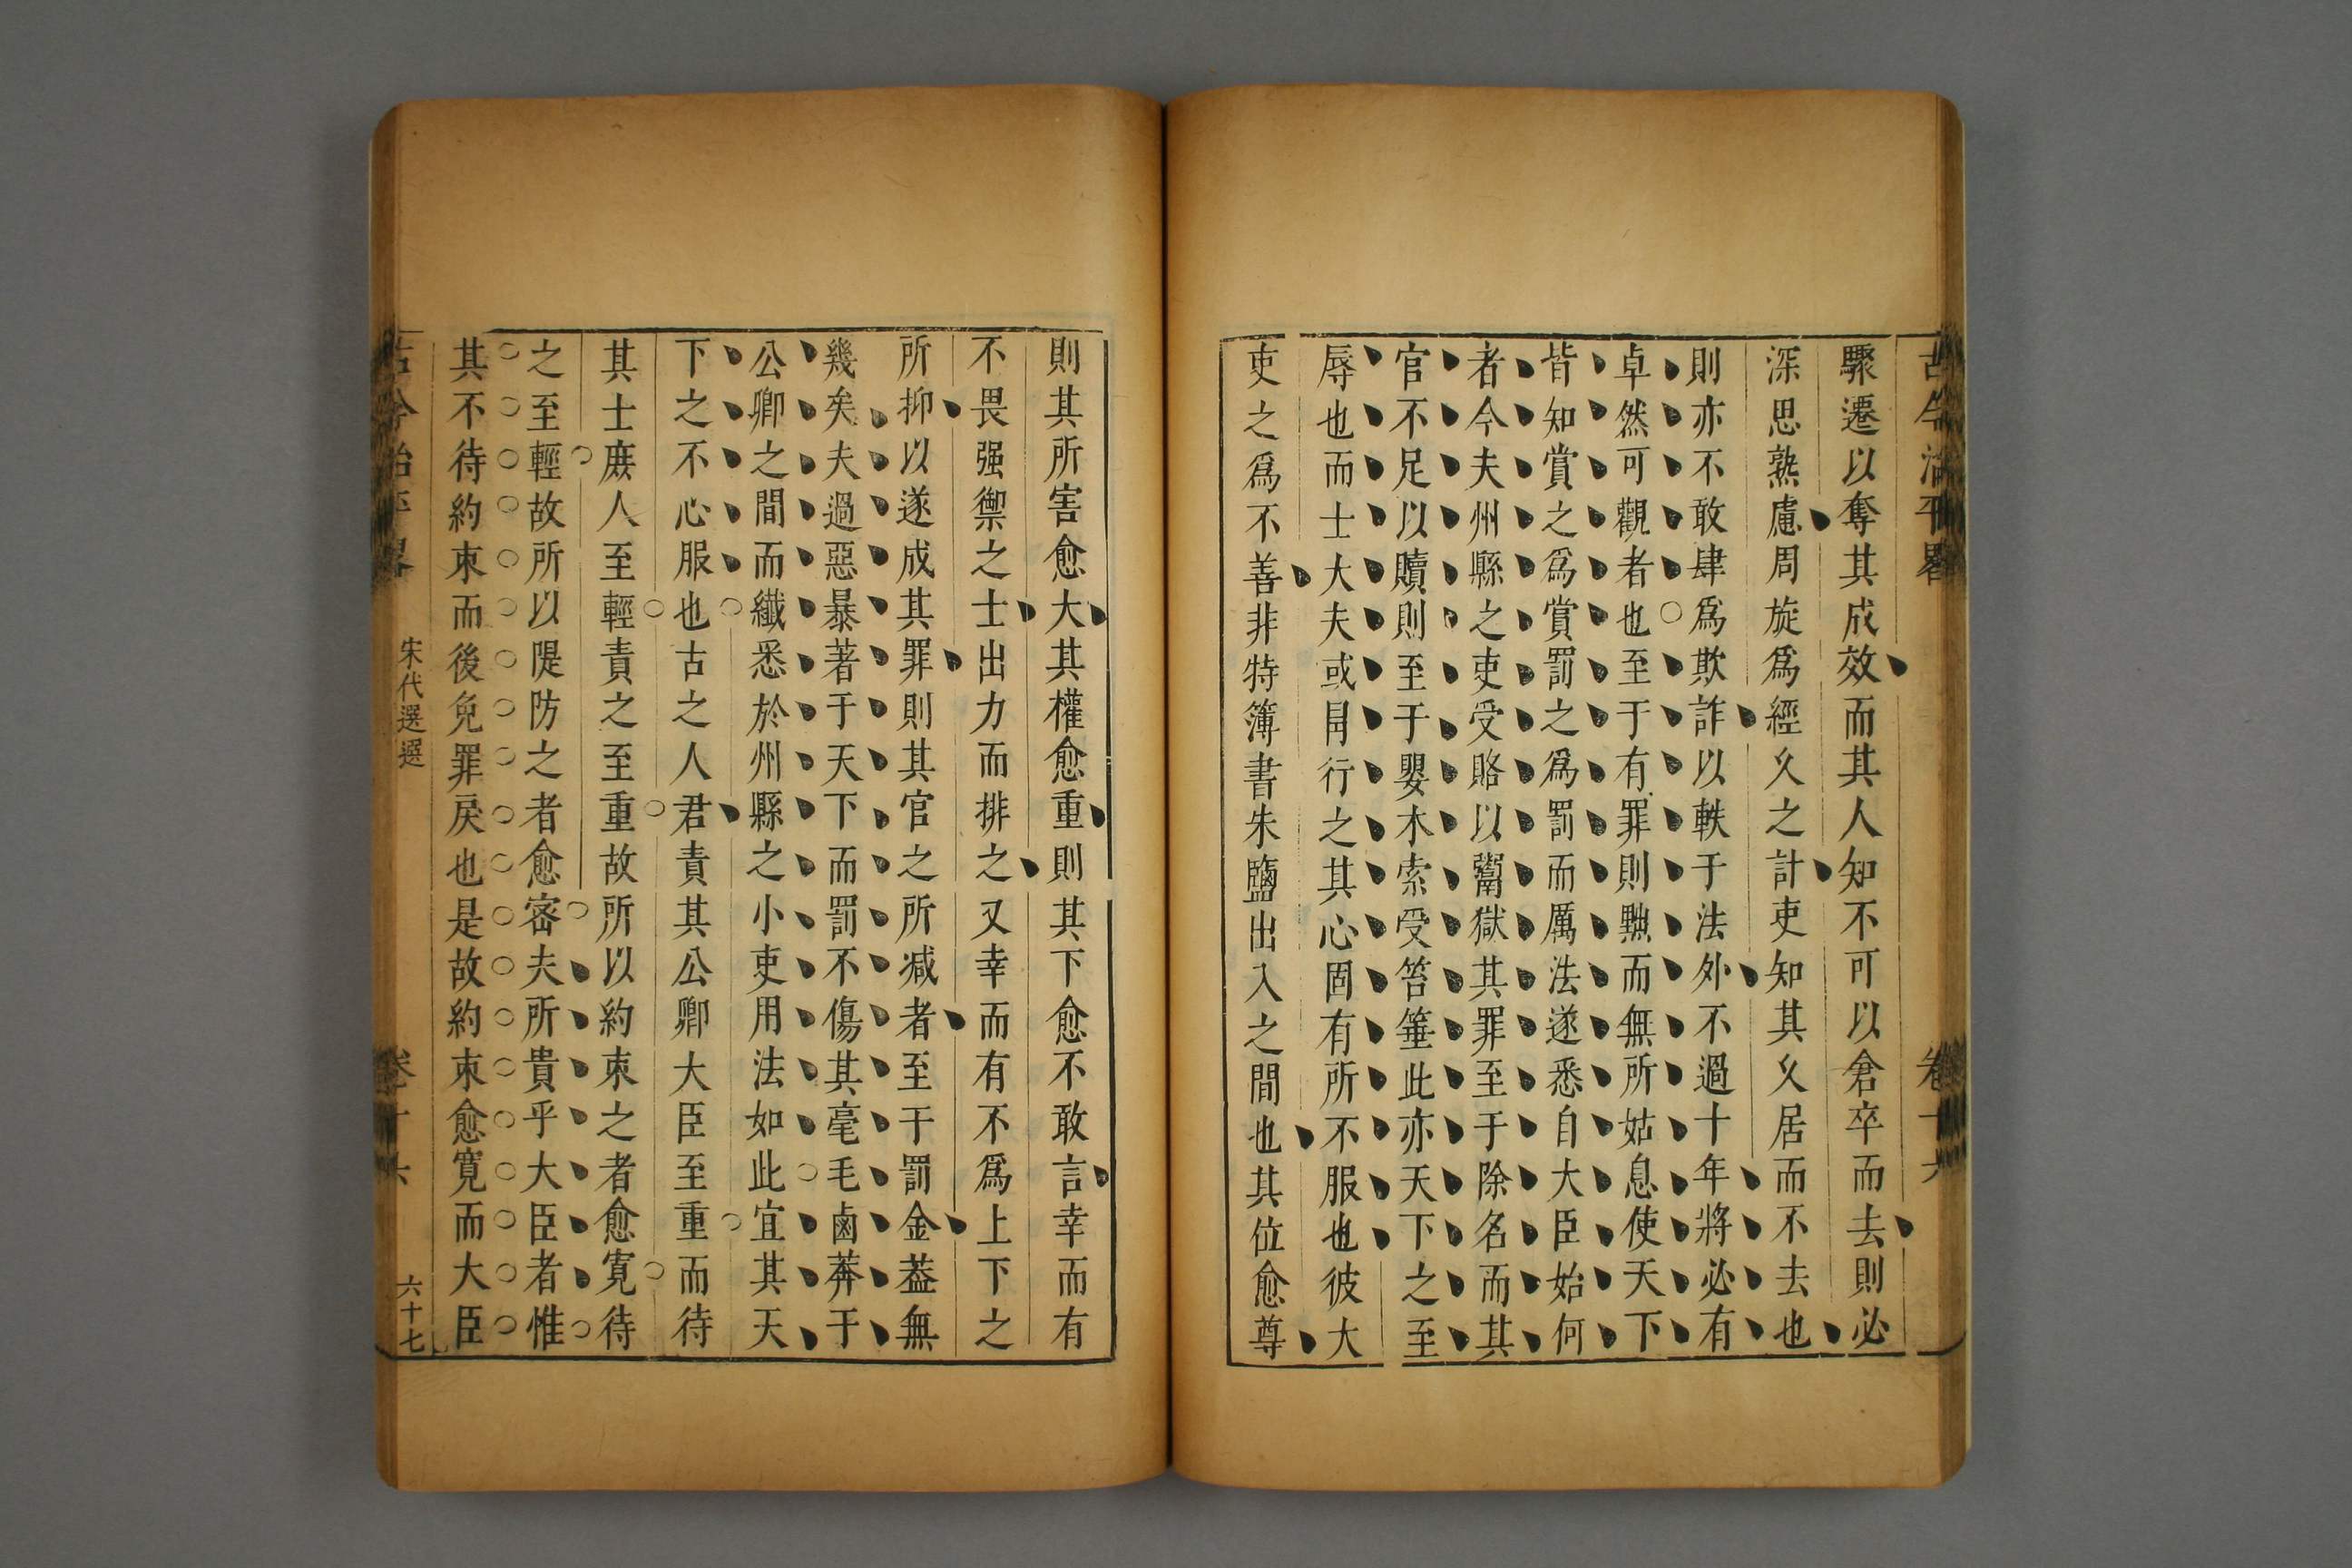 古今治平畧 卷十六
驟遷以奪其成效而其人知不可以倉卒而去則必
深思熟慮周旋爲經久之計吏知其久居而不去也
則亦不敢肆爲欺詐以軼于法外不過十年將必有
卓然可觀者也至于有罪則黜而無所姑息使天下
皆知賞之爲賞罰之爲罰而厲法遂悉自大臣始何
者今夫州縣之吏受賂以鬻獄其罪至于除名而其
官不足以贖則至于嬰木索受笞箠此亦天下之至
辱也而士大夫或冐行之其心固有所不服也彼大
吏之爲不善非特簿書朱鹽出入之間也其位愈尊
則其所害愈大其權愈重則其下愈不敢言幸而有
不畏强禦之士出力而排之又幸而有不爲上下之
所抑以遂成其罪則其官之所减者至于罰金葢無
幾矣夫過惡暴著于天下而罰不傷其毫毛鹵莽于
公卿之間而纖悉於州縣之小吏用法如此宜其天
下之不心服也古之人君責其公卿大臣至重而待
其士庶人至輕責之至重故所以約束之者愈寛待
之至輕故所以隄防之者愈密夫所貴乎大臣者惟
其不待約束而後免罪戾也是故約束愈寛而大臣
古今治平畧 宋代選 卷十六 六十七